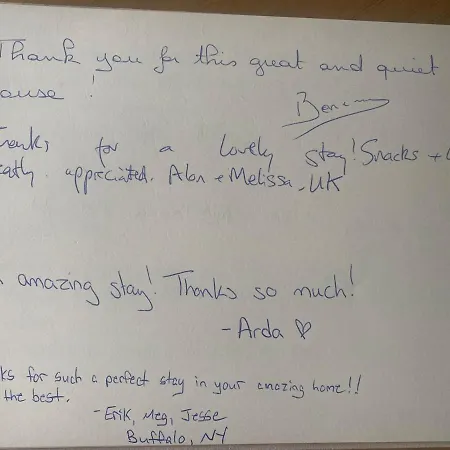 Thank you for this great and quiet
ouse !
for a lovely stay! Snacks +
appreciated. Alan + Melissa, UK
amazing stay! Thanks so much!
- Arda ♡
ks for such a perfect stay in your amazing home!!
the best.
- Erik, Meg, Jesse
Buffalo, NY